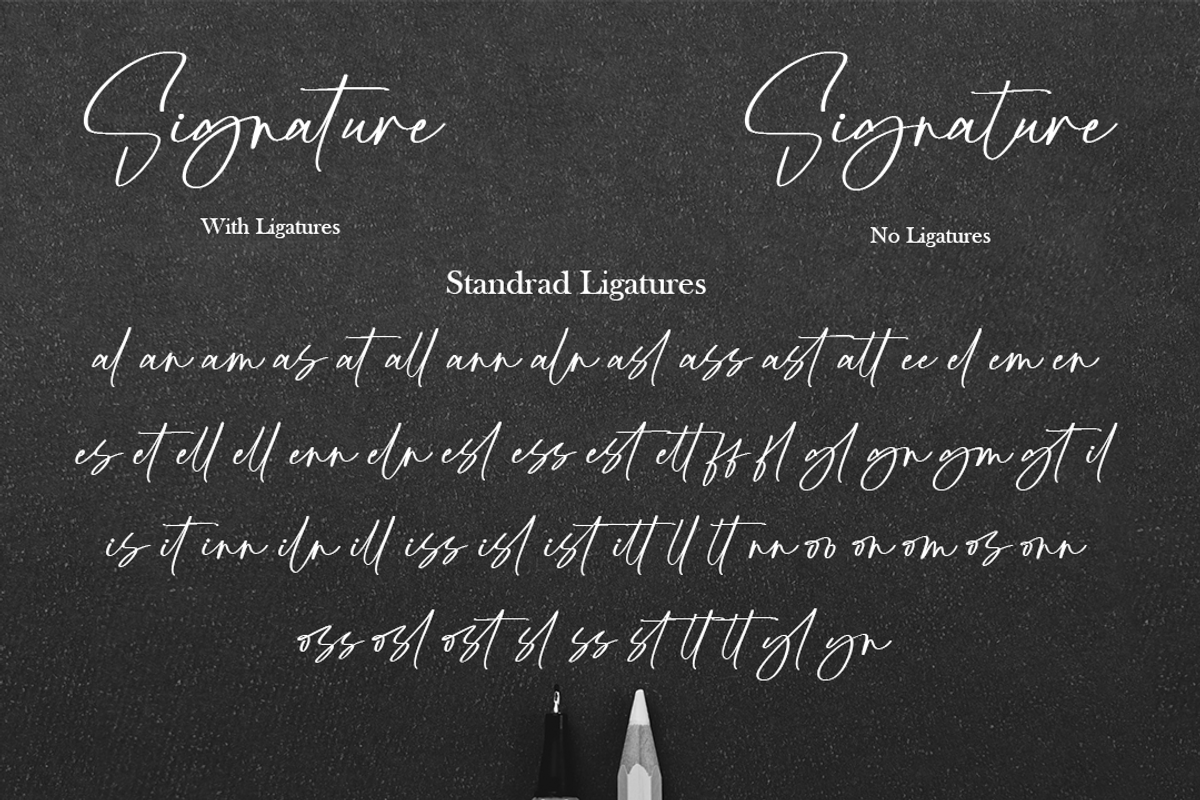 Signature Signature
With Ligatures No Ligatures
Standrad Ligatures
al an am as at all ann aln asl ass ast att ee el em en
es et ell ell enn eln esl ess est ett ff fl gl gn gm gt il
is it inn iln ill iss isl ist itt ll lt nn oo on om os onn
oss osl ost sl ss st tt tt yl yn